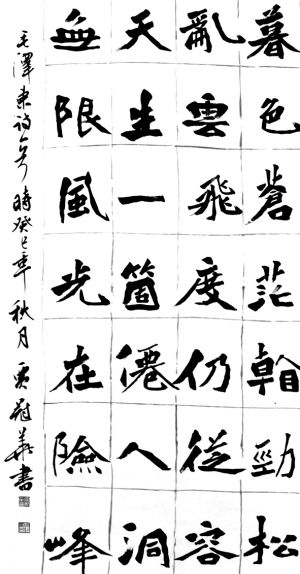 暮色蒼茫看勁松
亂雲飛度仍從容
天生一箇僊人洞
無限風光在險峰
毛澤東詩 時癸巳年秋月 書